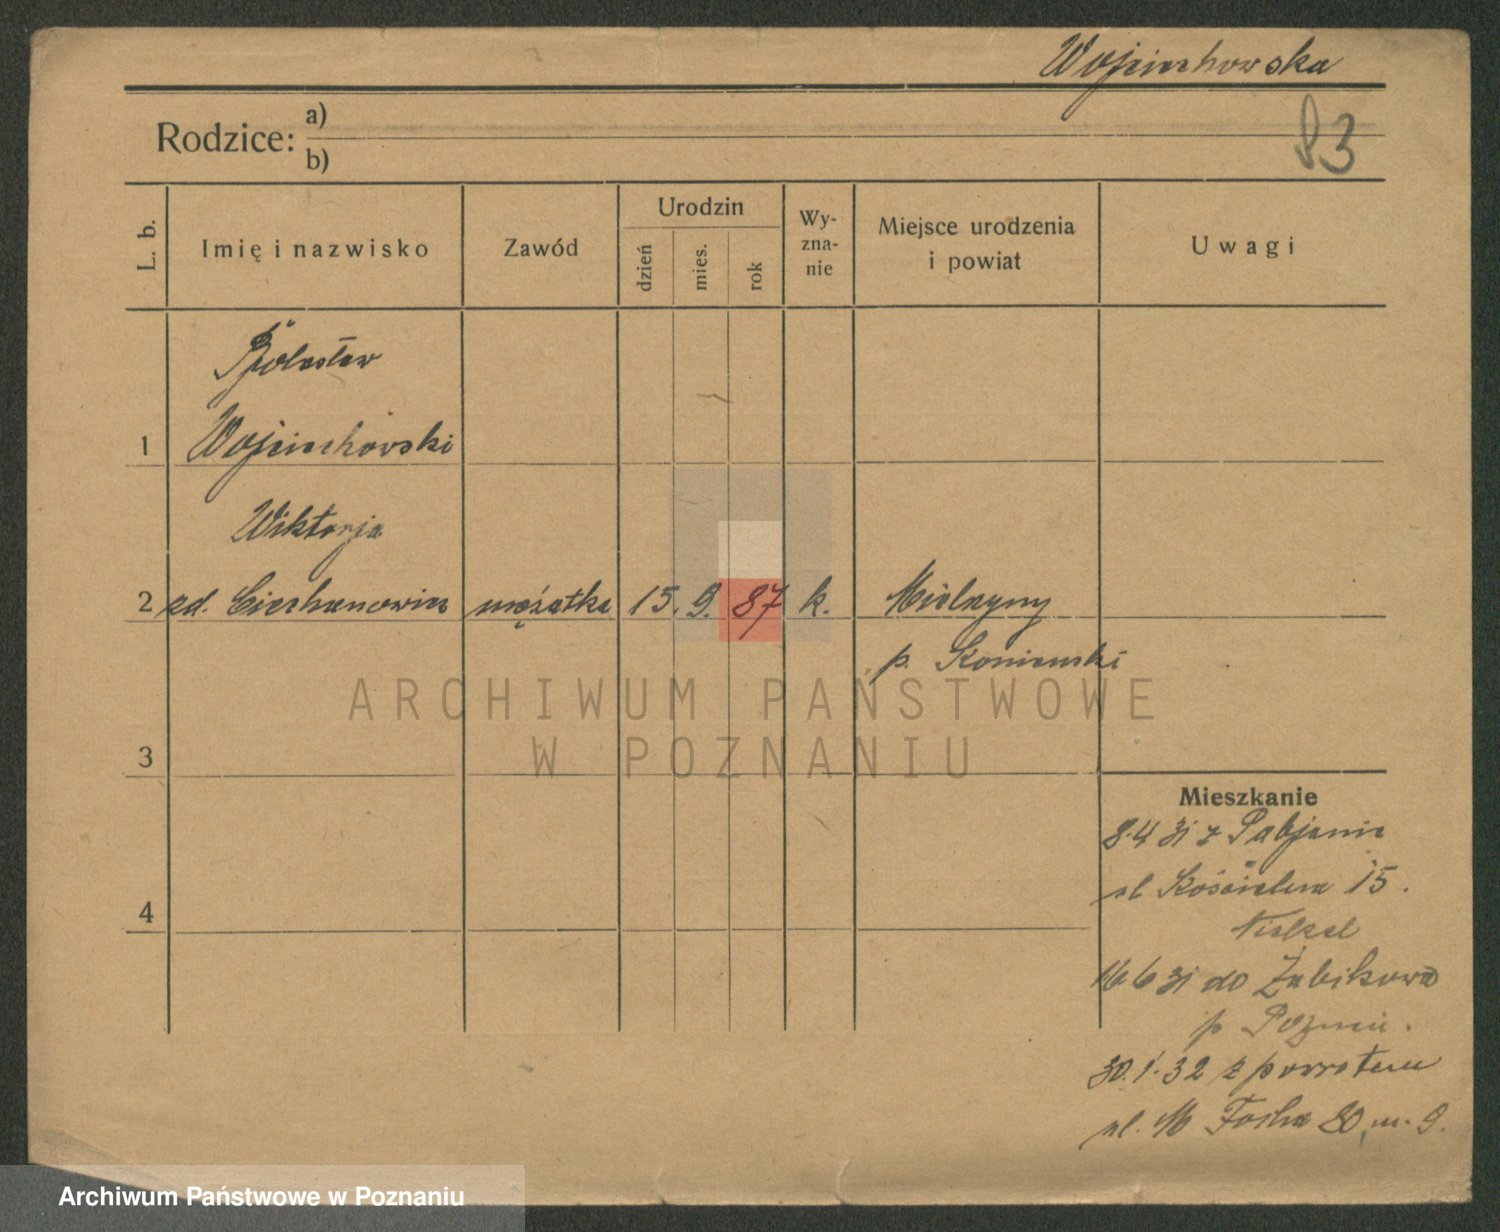 Wojciechowska
83
Rodzice: a)
b)
L. b.
Imię i nazwisko
Zawód
Urodzin
dzień
mies.
rok
Wy-
zna-
nie
Miejsce urodzenia
i powiat
Uwagi
Bolesław
1 Wojciechowski
Wiktorja
2 zd. Ciechanowicz mężatka 15. 9. 87 k. Mielżyny
p. Koniński
3
4
Mieszkanie
8.4 31 z Pabjanic
ul Kościelna 15.
16 6 31 do Żabikowa
p Pozn.
30.1.32 z powrotem
ul. M Focha 80 m. 9.
ARCHIWUM PAŃSTWOWE
W POZNANIU
Archiwum Państwowe w Poznaniu